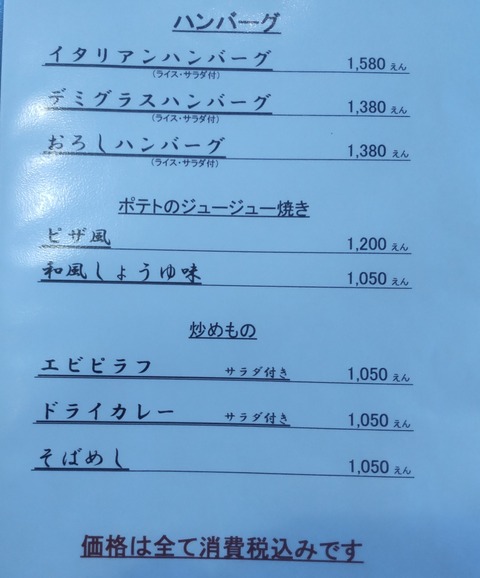 ハンバーグ
イタリアンハンバーグ 1,580 えん
(ライス・サラダ付)
デミグラスハンバーグ 1,380 えん
(ライス・サラダ付)
おろしハンバーグ 1,380 えん
(ライス・サラダ付)
ポテトのジュージュー焼き
ピザ風 1,200 えん
和風しょうゆ味 1,050 えん
炒めもの
エビピラフ サラダ付き 1,050 えん
ドライカレー サラダ付き 1,050 えん
そばめし 1,050 えん
価格は全て消費税込みです